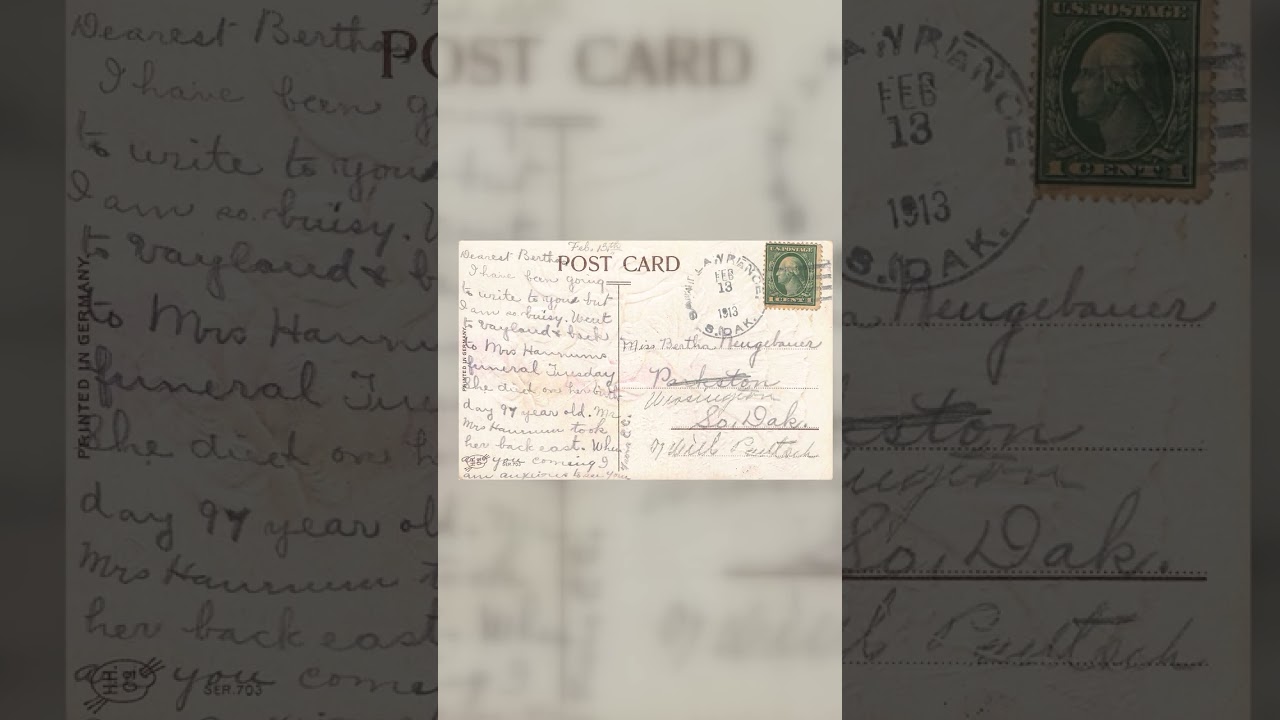 Feb. 13th
Dearest Bertha
I have been going
to write to you but
I am so buisy. Went
to Vayland & back
to Mrs Hannums
funeral Tuesday
She died on her birth
day 97 year old. Mr
Mrs Hannum took
her back east. When
are you coming I
am anxious to see you
PRINTED IN GERMANY
SER. 703
POST CARD
LAWRENCE,
FEB
13
1913
S. DAK.
U.S. POSTAGE
1 CENT 1
Miss Bertha Neugebauer
Parkston
So. Dak.
Will